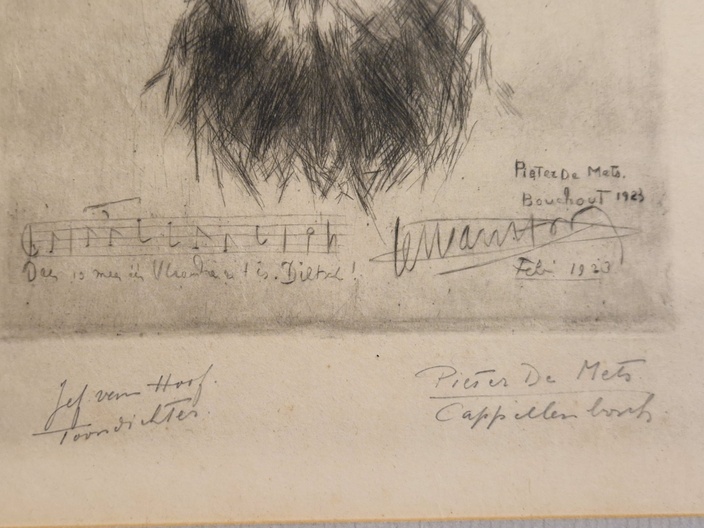 Pieter De Mets.
Bouchout 1923
is meer
is. Dietsch!
Febr 1923
Jef van Hoof.
Toondichter.
Pieter De Mets
Cappellenbosch